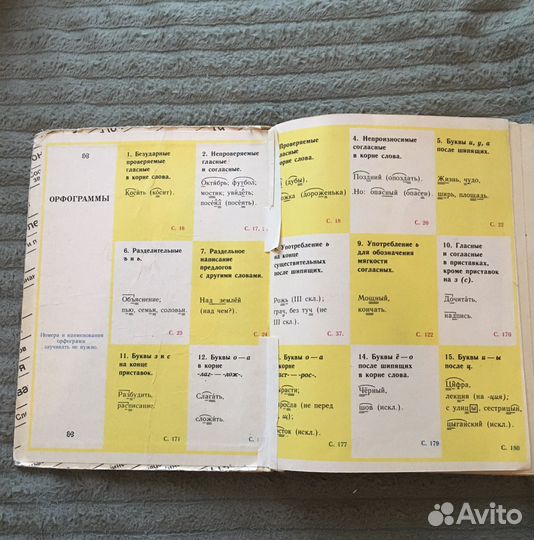 ОРФОГРАММЫ
Номера и наименования
орфограмм
заучивать не нужно.
1. Безударные
проверяемые
гласные
в корне слова.
Косить (косит).
С. 16
2. Непроверяемые
гласные
и согласные.
Октябрь; футбол;
мостик; увидеть;
посеял (посеять).
С. 17,
проверяемые
гласные
в корне слова.
(дубы),
(дороженька)
С. 18
4. Непроизносимые
согласные
в корне слова.
Поздний (опоздать).
Но: опасный (опасен)
С. 20
5. Буквы и, у, а
после шипящих.
Жизнь, чудо,
ширь, площадь.
С. 22
6. Разделительные
ъ и ь.
Объяснение;
пью, семья, соловьи.
С. 23
7. Раздельное
написание
предлогов
с другими словами.
Над землёй
(над чем?).
С. 24
Употребление ь
на конце
существительных
после шипящих.
Рожь (III скл.);
без туч (не
III скл.).
С. 37.
9. Употребление ь
для обозначения
мягкости
согласных.
Мощный,
кончать.
С. 122
10. Гласные
и согласные
в приставках,
кроме приставок
на з (с).
Дочитать,
надпись.
С. 170
11. Буквы з и с
на конце
приставок.
Разбудить,
расписание.
С. 171
12. Буквы о — а
в корне
-лаг- — -лож-.
Слагать,
сложить.
С.
Буквы о — а
-рос-.
(не перед
щ).
(искл.).
С. 177
14. Буквы ё—о
после шипящих
в корне слова.
Чёрный,
шов (искл.).
С. 179
15. Буквы и — ы
после ц.
Цифра,
лекция (на -ция);
с улицы, сестрицын,
цыганский (искл.).
С. 180
Avito